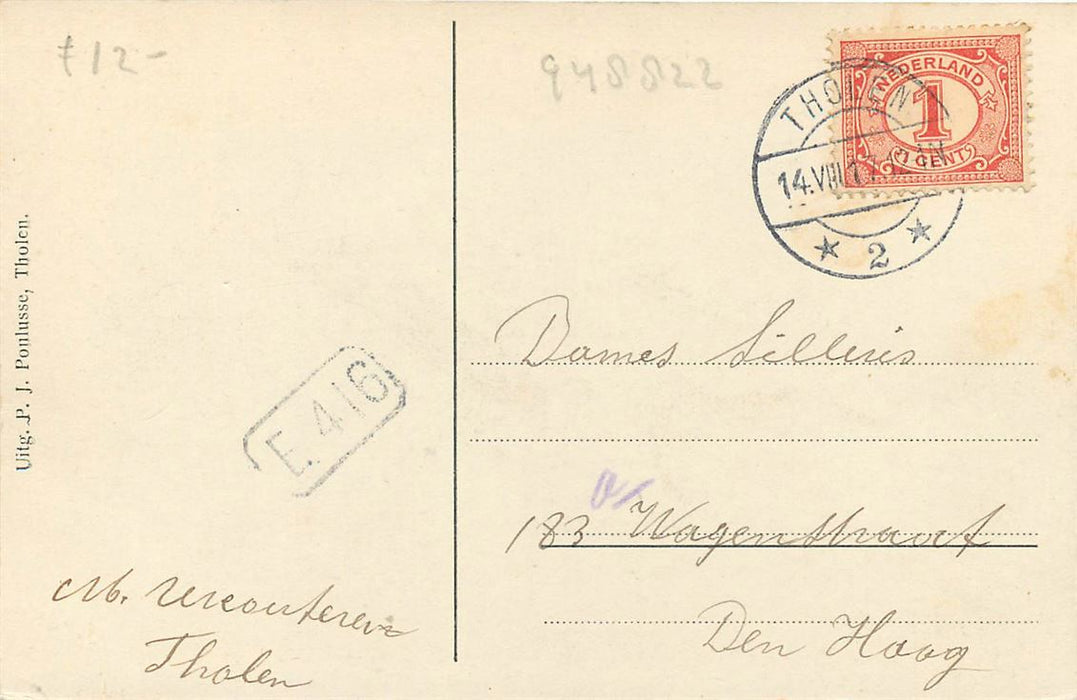 f12-
948822
NEDERLAND
1
1 CENT
THOLEN
14.VIII.1
2
Uitg. P. J. Poulusse, Tholen.
E. 416
Dames Silleris
183 Wagenstraat
Den Haag
M.
Tholen